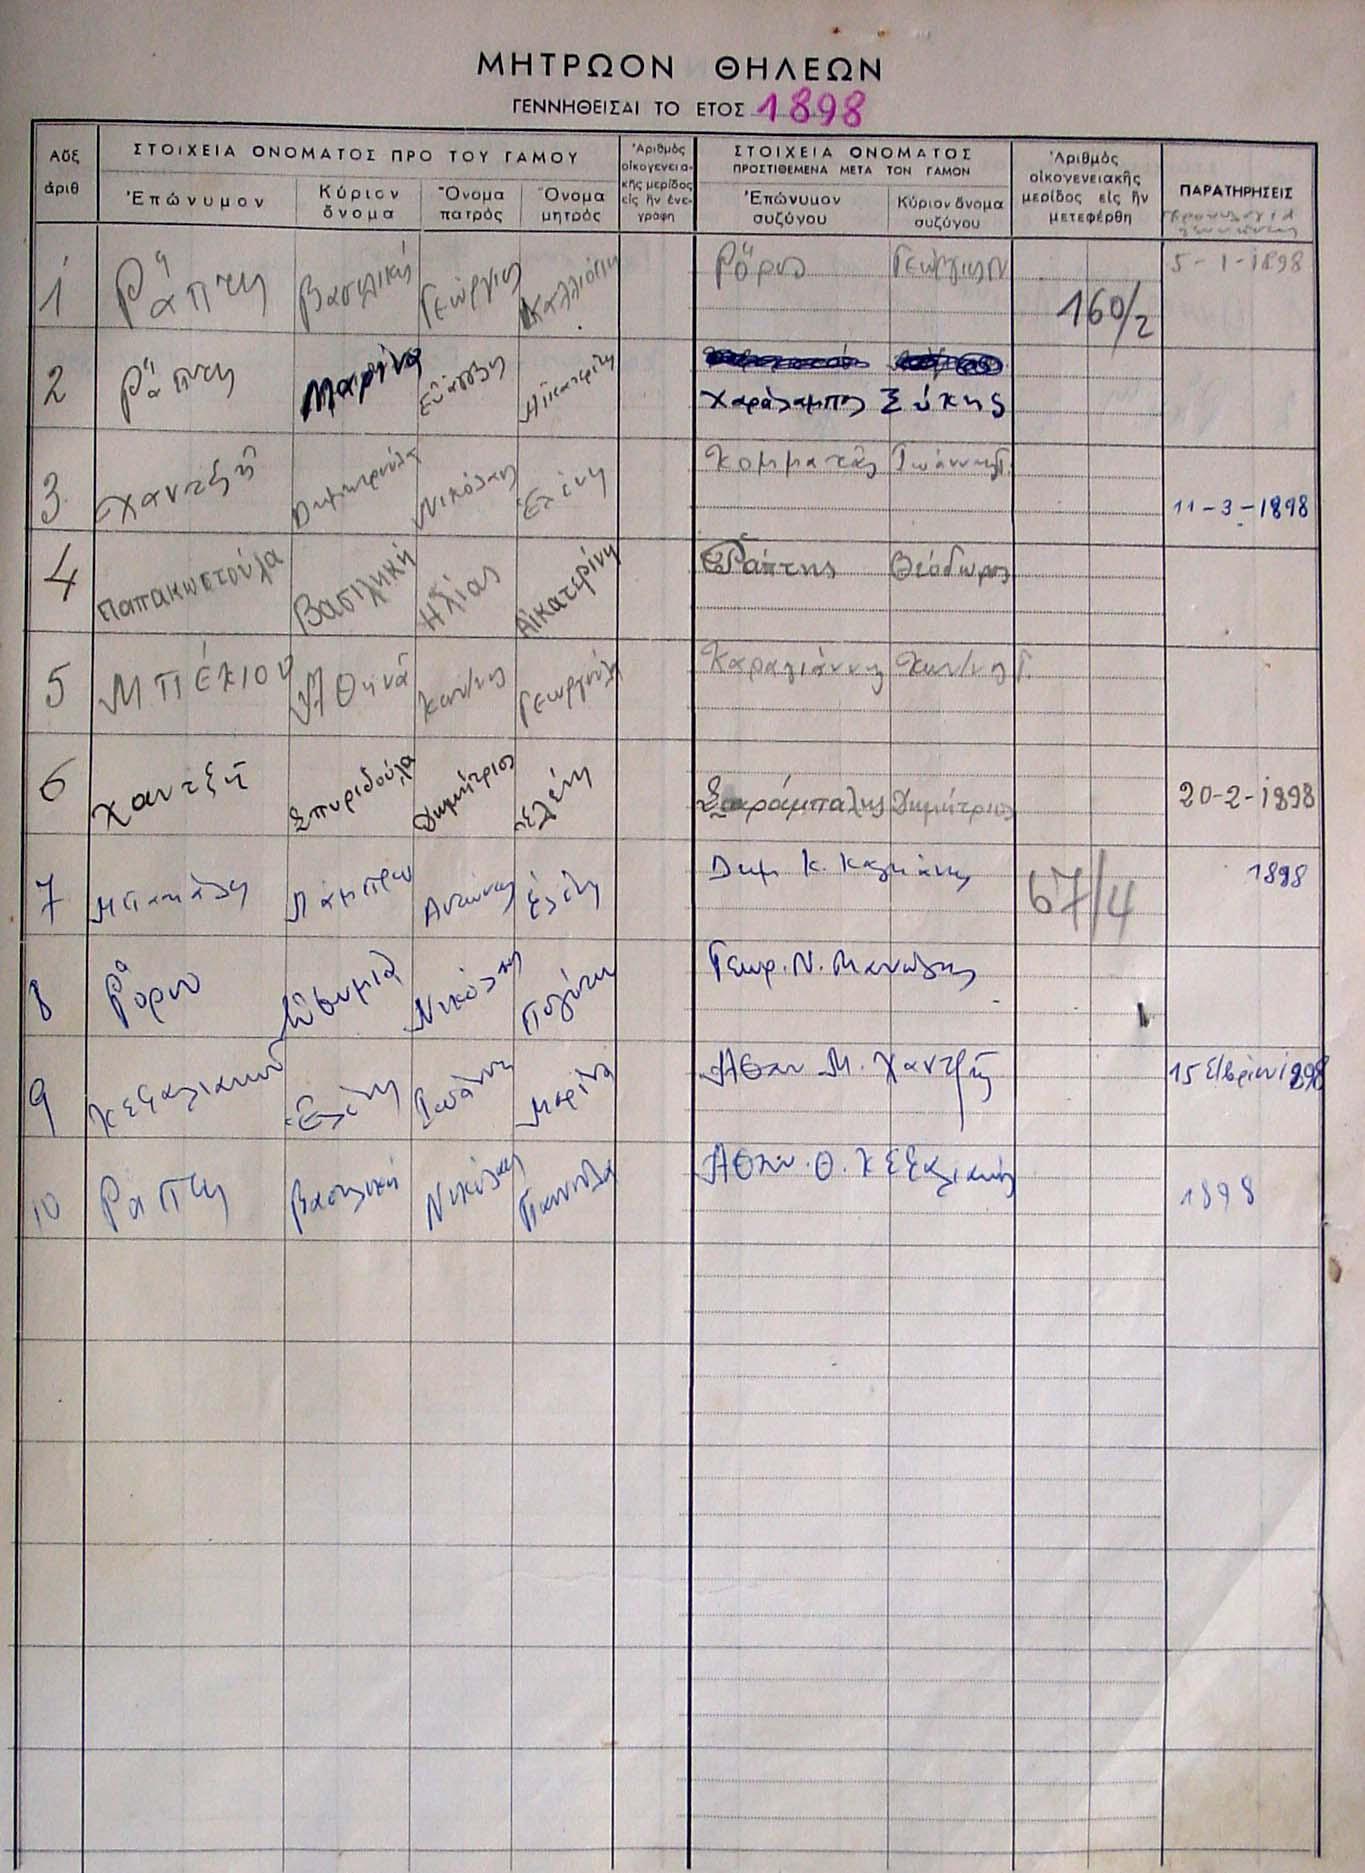 ΜΗΤΡΩΟΝ ΘΗΛΕΩΝ
ΓΕΝΝΗΘΕΙΣΑΙ ΤΟ ΕΤΟΣ 1898
Αὔξ ἀριθ
ΣΤΟΙΧΕΙΑ ΟΝΟΜΑΤΟΣ ΠΡΟ ΤΟΥ ΓΑΜΟΥ
Ἐπώνυμον
Κύριον ὄνομα
Ὄνομα πατρός
Ὄνομα μητρός
Ἀριθμὸς οἰκογενειακῆς μερίδος εἰς ἣν ἐνεγράφη
ΣΤΟΙΧΕΙΑ ΟΝΟΜΑΤΟΣ
ΠΡΟΣΤΙΘΕΜΕΝΑ ΜΕΤΑ ΤΟΝ ΓΑΜΟΝ
Ἐπώνυμον συζύγου
Κύριον ὄνομα συζύγου
Ἀριθμὸς οἰκογενειακῆς μερίδος εἰς ἣν μετεφέρθη
ΠΑΡΑΤΗΡΗΣΕΙΣ
1 Ῥάπτη Βασιλική Γεώργιος Καλλιόπη 160/2 5-1-1898
2 Ῥάπτη Μαρίνα Αἰκατερίνη Χαράλαμπος Σύκης
3 Χαντζῆ Δημητρούλα Νικόλαος Ἑλένη Κομματᾶς Ἰωάννης 11-3-1898
4 Παπακωστούλα Βασιλική Ηλίας Αἰκατερίνη Ράπτης Θεόδωρος
5 ΜΠΕΚΙΟΥ Ἀθηνᾶ Κων/νος Γεωργούλα Καραγιάννης Κων/νος Γ.
6 Χαντζῆ Σπυριδούλα Δημήτριος Ἑλένη Δημήτριος 20-2-1898
7 Λάμπρω Ἀντώνιος Ἑλένη Δημ. Κ. 67/4 1898
8 Ῥόρου Εὐθυμία Νικόλαος Γεωρ. Ν. Μανώλης
9 Ἑλένη Ἰωάννης Μαρίνα Ἀθαν. Μ. Χαντζῆς
10 Ράπτη Βασιλική Νικόλαος Γιαννούλα Ἀθαν. Θ. 1898